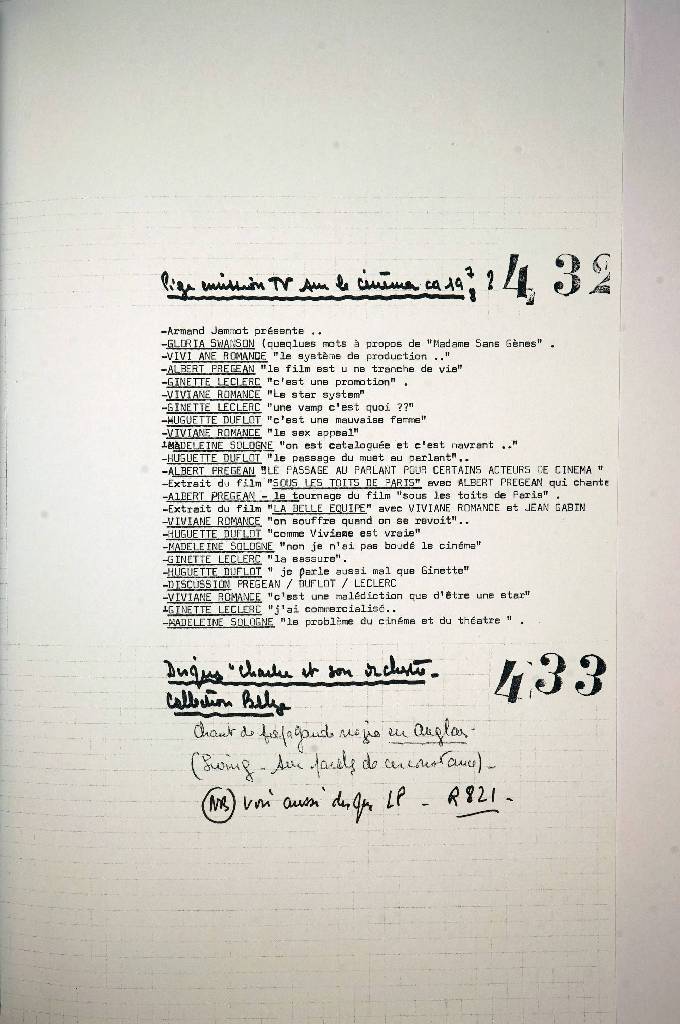 Pige emission TV sur le cinéma ca 19 7 8 ? 432
-Armand Jammot présente ..
-GLORIA SWANSON (queqlues mots à propos de "Madame Sans Gènes" .
-VIVI ANE ROMANCE "le système de production .."
-ALBERT PREGEAN "le film est u ne tranche de vie"
-GINETTE LECLERC "c'est une promotion" .
-VIVIANE ROMANCE "Le star system"
-GINETTE LECLERC "une vamp c'est quoi ??"
-HUGUETTE DUFLOT "c'est une mauvaise femme"
-VIVIANE ROMANCE "le sex appeal"
-MADELEINE SOLOGNE "on est cataloguée et c'est navrant .."
-HUGUETTE DUFLOT "le passage du muet au parlant"..
-ALBERT PREGEAN "LE PASSAGE AU PARLANT POUR CERTAINS ACTEURS DE CINEMA "
-Extrait du film "SOUS LES TOITS DE PARIS" avec ALBERT PREGEAN qui chante
-ALBERT PREGEAN - le tournage du film "sous les toits de Paris" .
-Extrait du film "LA BELLE EQUIPE" avec VIVIANE ROMANCE et JEAN GABIN
-VIVIANE ROMANCE "on souffre quand on se revoit"..
-HUGUETTE DUFLOT "comme Viviane est vraie"
-MADELEINE SOLOGNE "non je n'ai pas boudé le cinéma"
-GINETTE LECLERC "la eassure".
-HUGUETTE DUFLOT " je parle aussi mal que Ginette"
-DISCUSSION PREGEAN / DUFLOT / LECLERC
-VIVIANE ROMANCE "c'est une malédiction que d'être une star"
-GINETTE LECLERC "j'ai commercialisé..
-MADELEINE SOLOGNE "le problème du cinéma et du théatre " .
Disque "Charlie et son orchestre - 433
Collection
Chant de propagande nazie en Anglais -
(Swing - sur de circonstance) -
(NB) Voir aussi disque LP - R 821 -